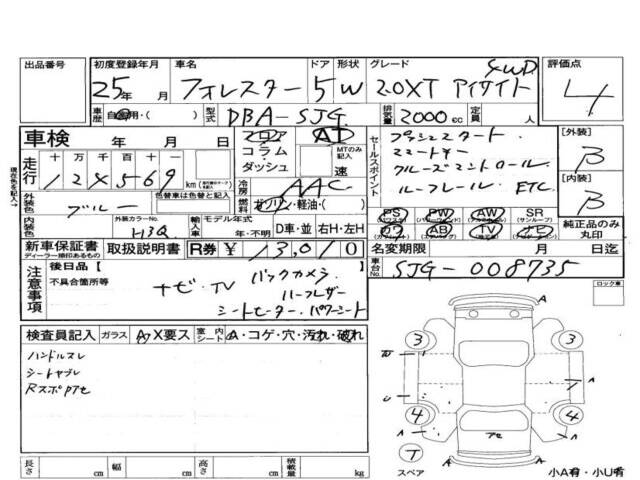 出品番号
初度登録年月
25年 月
車名
フォレスター
ドア 形状
5 W
グレード
4WD
2.0XT アイサイト
評価点
4
車歴 自家用・( )
型式 DBA-SJG
排気量 2000cc
定員 人
車検 年 月 日
フロア AT
コラム・ダッシュ
MTのみ記入
速
セールスポイント
プッシュスタート
スマートキー
クルーズコントロール
ルーフレール ETC
[外装]
B
[内装]
B
現在色を記入→
走行 十 万 千 百 十 一
124569 km
冷房 AAC
外装色 ブルー
色替車は色替と記入
燃料 ガソリン・軽油・( )
PS PW AW SR
AB TV ナビ
純正品のみ丸印
内装色
外装カラーNo.
H3Q
輸入車 モデル年式
年・不明
D車・並 右H・左H
新車保証書
ディーラー捺印あるもの
取扱説明書
R券 ¥13,010
名変期限 月 日迄
車台No. SJG-008735
注意事項
後日品[ ]
不具合箇所等
ナビ・TV バックカメラ
ハーフレザー
シートヒーター パワーシート
ロック車
検査員記入
ガラス A・X要ス
室内シート A・コゲ・穴・汚れ・破れ
ハンドルスレ
シートヤブレ
RスポPアセ
3 3
A
W
U
A
4 4
アセ
A
T
スペア
小A有・小U有
長さ cm
幅 cm
高さ cm
積載量 kg